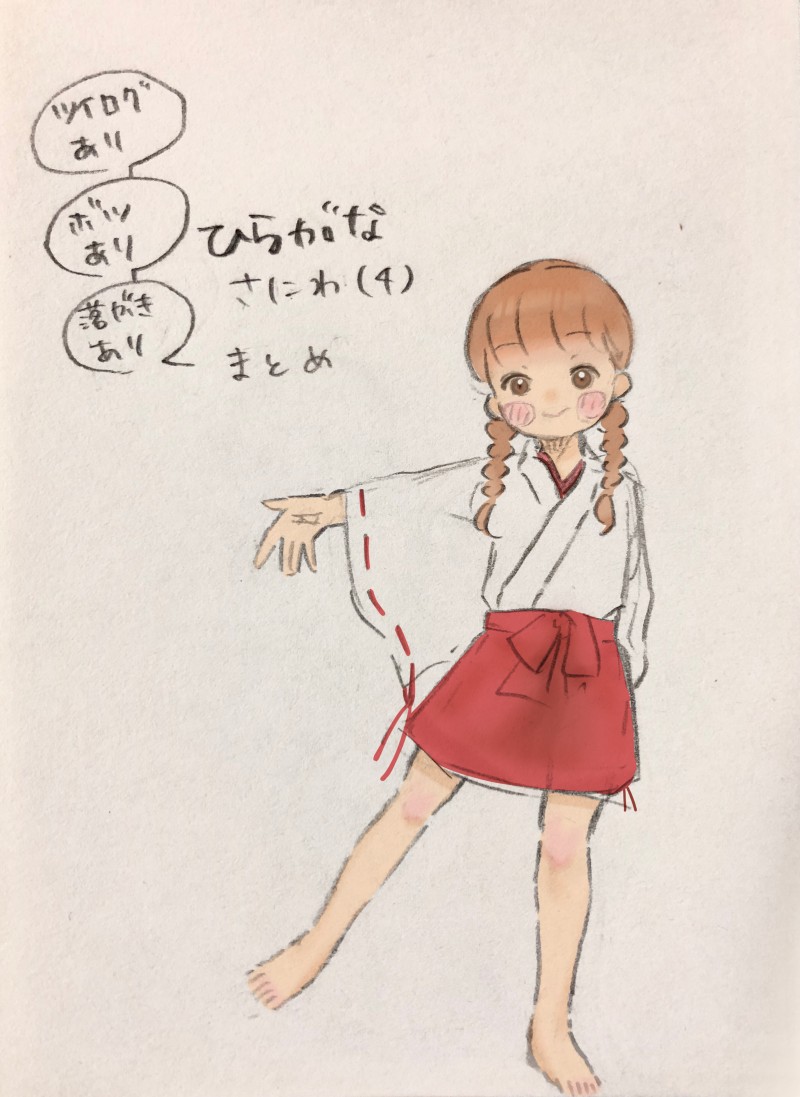 ツイログ
あり
ボツ
あり
落がき
あり
ひらがな
さにわ(4)
まとめ